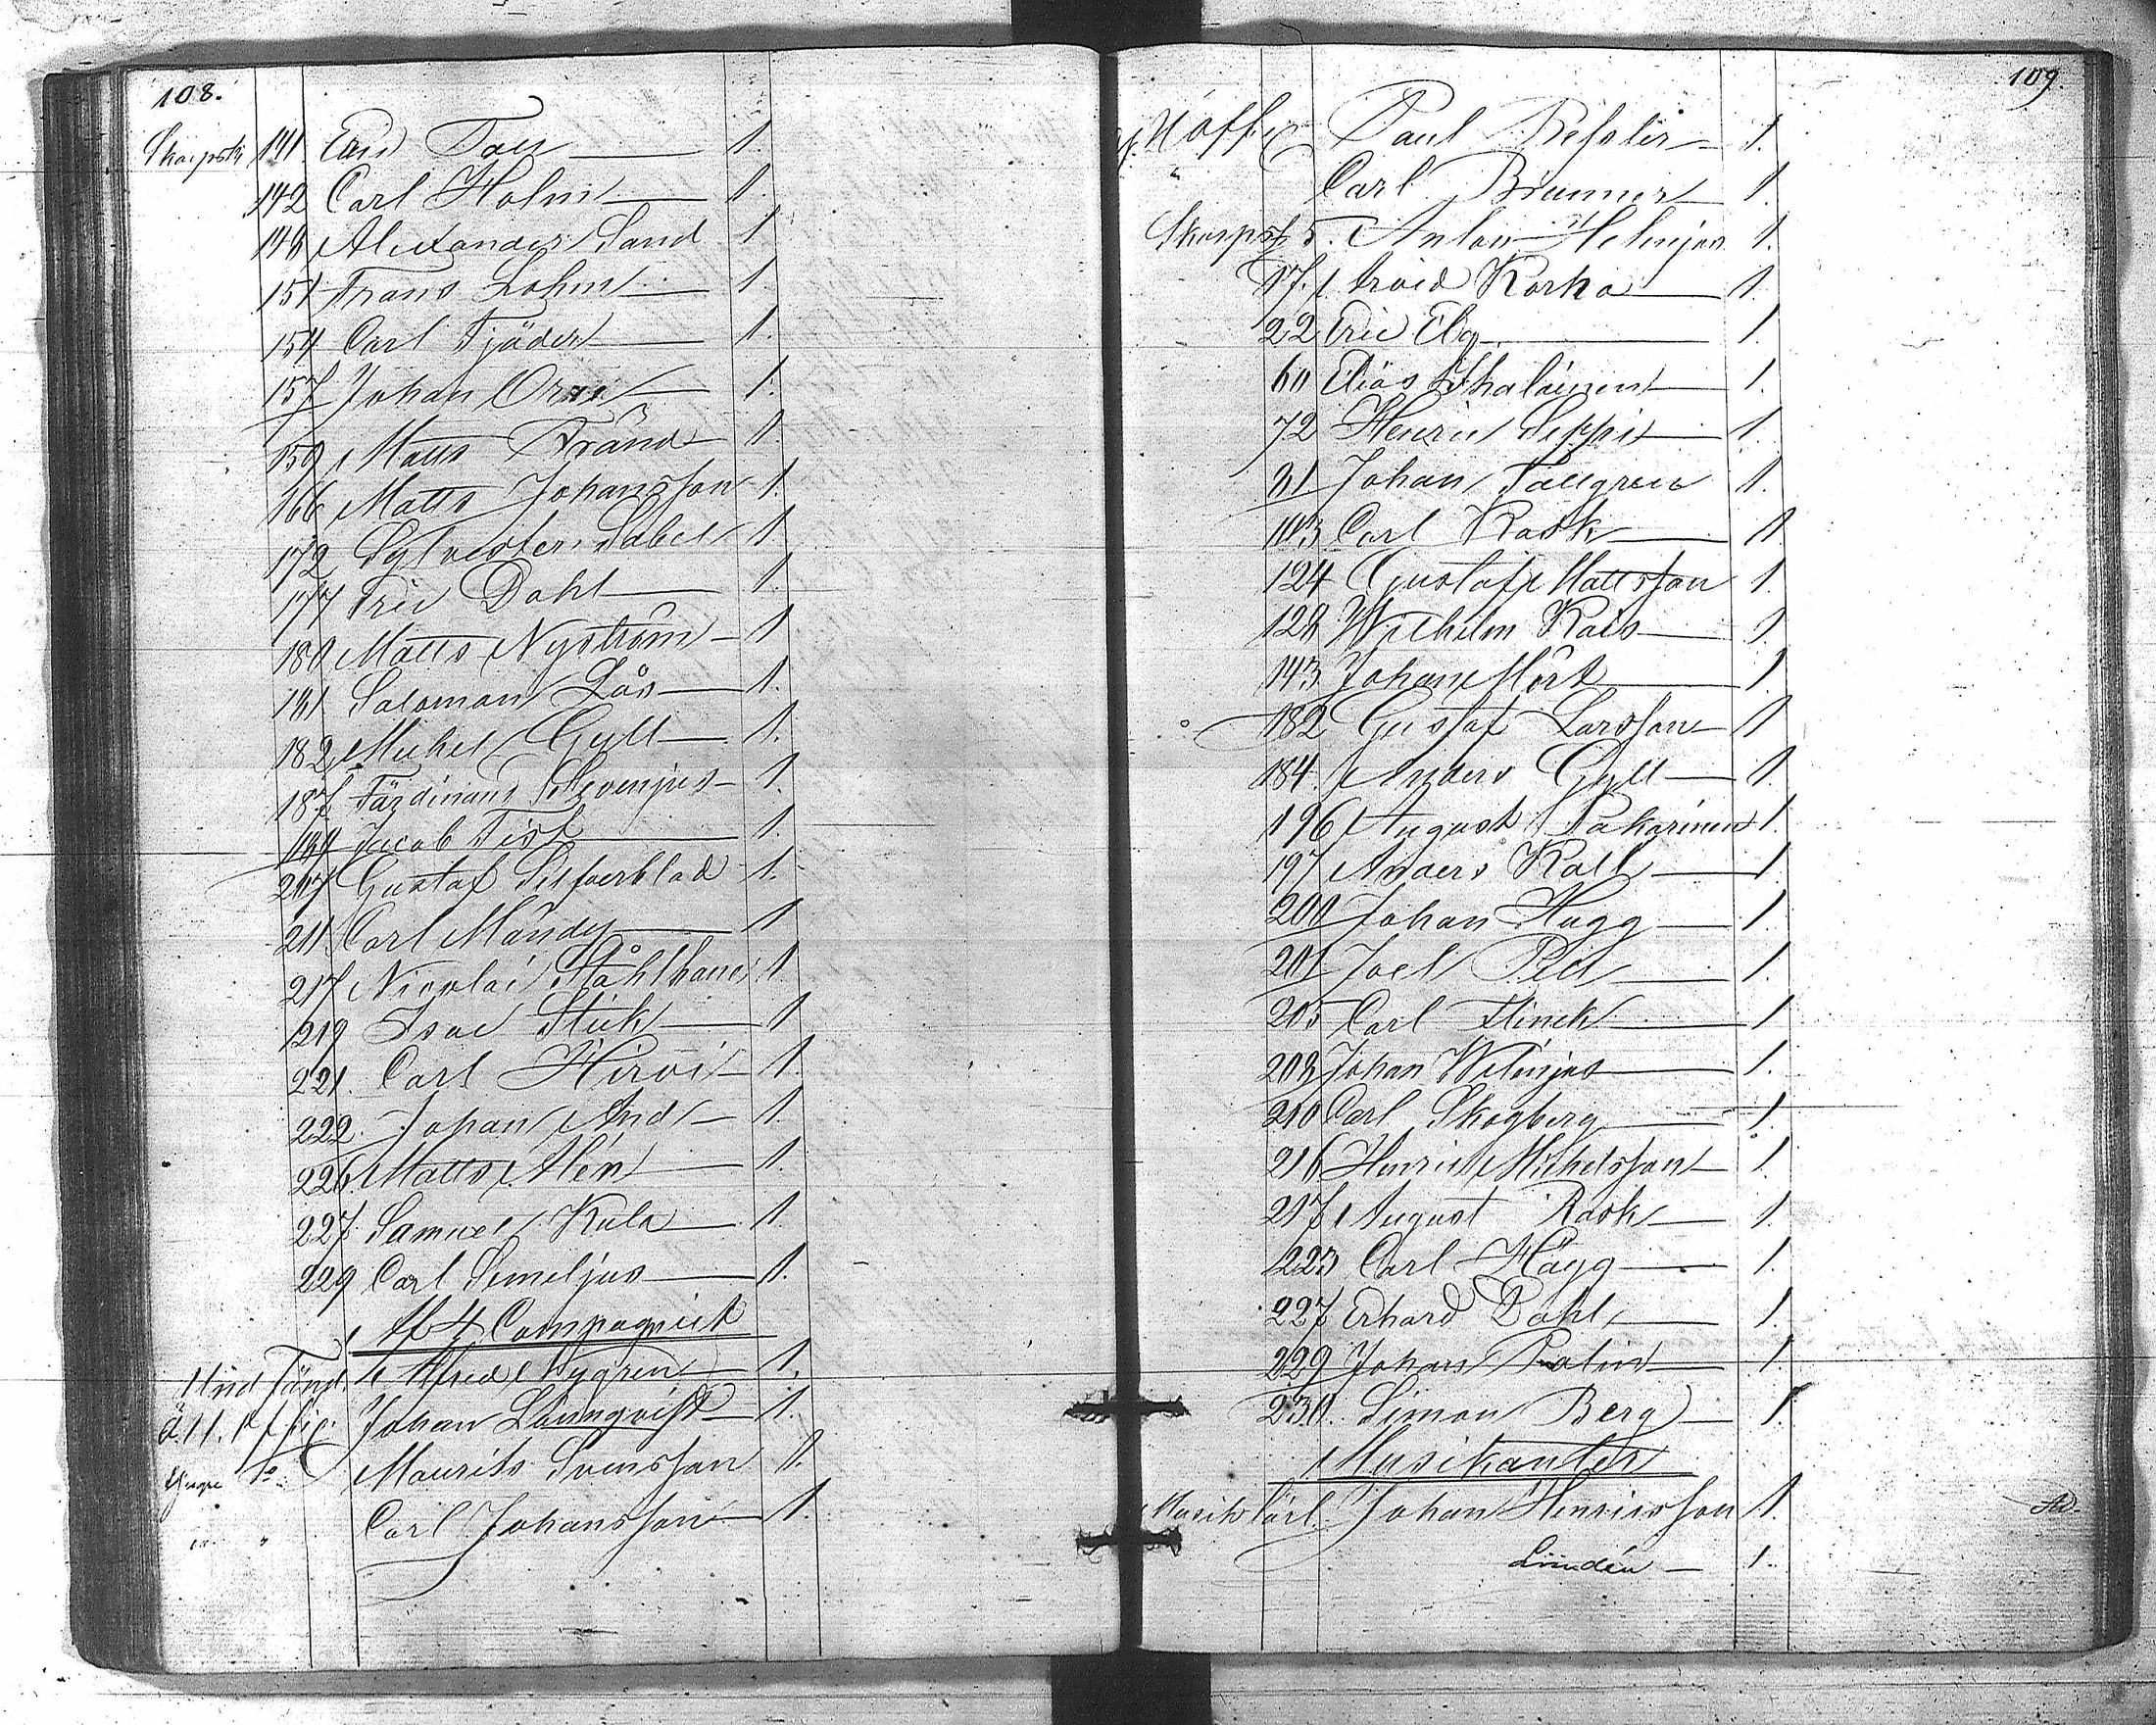 108.
Skarpsk. 141 Eric Tau 1.
142 Carl Holm 1.
148 Alexander Sand 1
151 Frans Lohm 1.
154 Carl Tjäder 1.
157 Johan Orre 1.
159 Matts Fränd 1.
166 Matts Johansson 1.
172 Sylvester Sabel 1.
177 Eric Dahl 1.
180 Matts Nyström 1
181 Saloman Lås 1.
182 Michel Gyll 1.
187 Färdinand Stevenjus 1.
189 Jacob Fisk 1.
207 Gustaf Silfverblad 1.
211. Carl Mandy 1
217 Nicolai Ståhlhane 1.
219 Isac Stick 1.
221. Carl Hirvi 1.
222. Johan And 1.
226. Matts Alén 1.
227. Samuel Kula 1.
229 Carl Semeljus 1.
Af 4 Compagniet
Und. Alfred Nygren 1.
Johan Lönnqvist 1.
Yngre Maurits Svensson 1.
Carl Johansson 1.
109.
Paul 1.
" Carl Brunner 1
Skarpsk. 5. Anton Helenjus 1.
17. Arvid Korka 1.
22 Eric Elg 1.
60 Eliäs Ihalainen 1.
72 Henric Seppi 1.
81 Johan Tallgren 1.
103 Carl Rask 1
124 Gustaf Mattsson 1.
128 Wilhelm Rais 1
143 Johan Mört 1
182 Gustaf Larsson 1
184. Anders Gyll 1
196 August Pakarinen 1.
197 Anders Kall 1
200 Johan Hugg 1
201 Joel Pell 1.
205 Carl Flinck 1
208 Johan Welinjus 1.
210 Carl Skogberg 1.
216 Henric Michelsson 1
217 August Rask 1.
223 Carl Hägg 1.
227 Erhard Dahl 1.
229 Johan Palin 1.
230. Simon Berg 1.
Musikanter
Musik karl. Johan Henricsson 1.
Lindén 1.